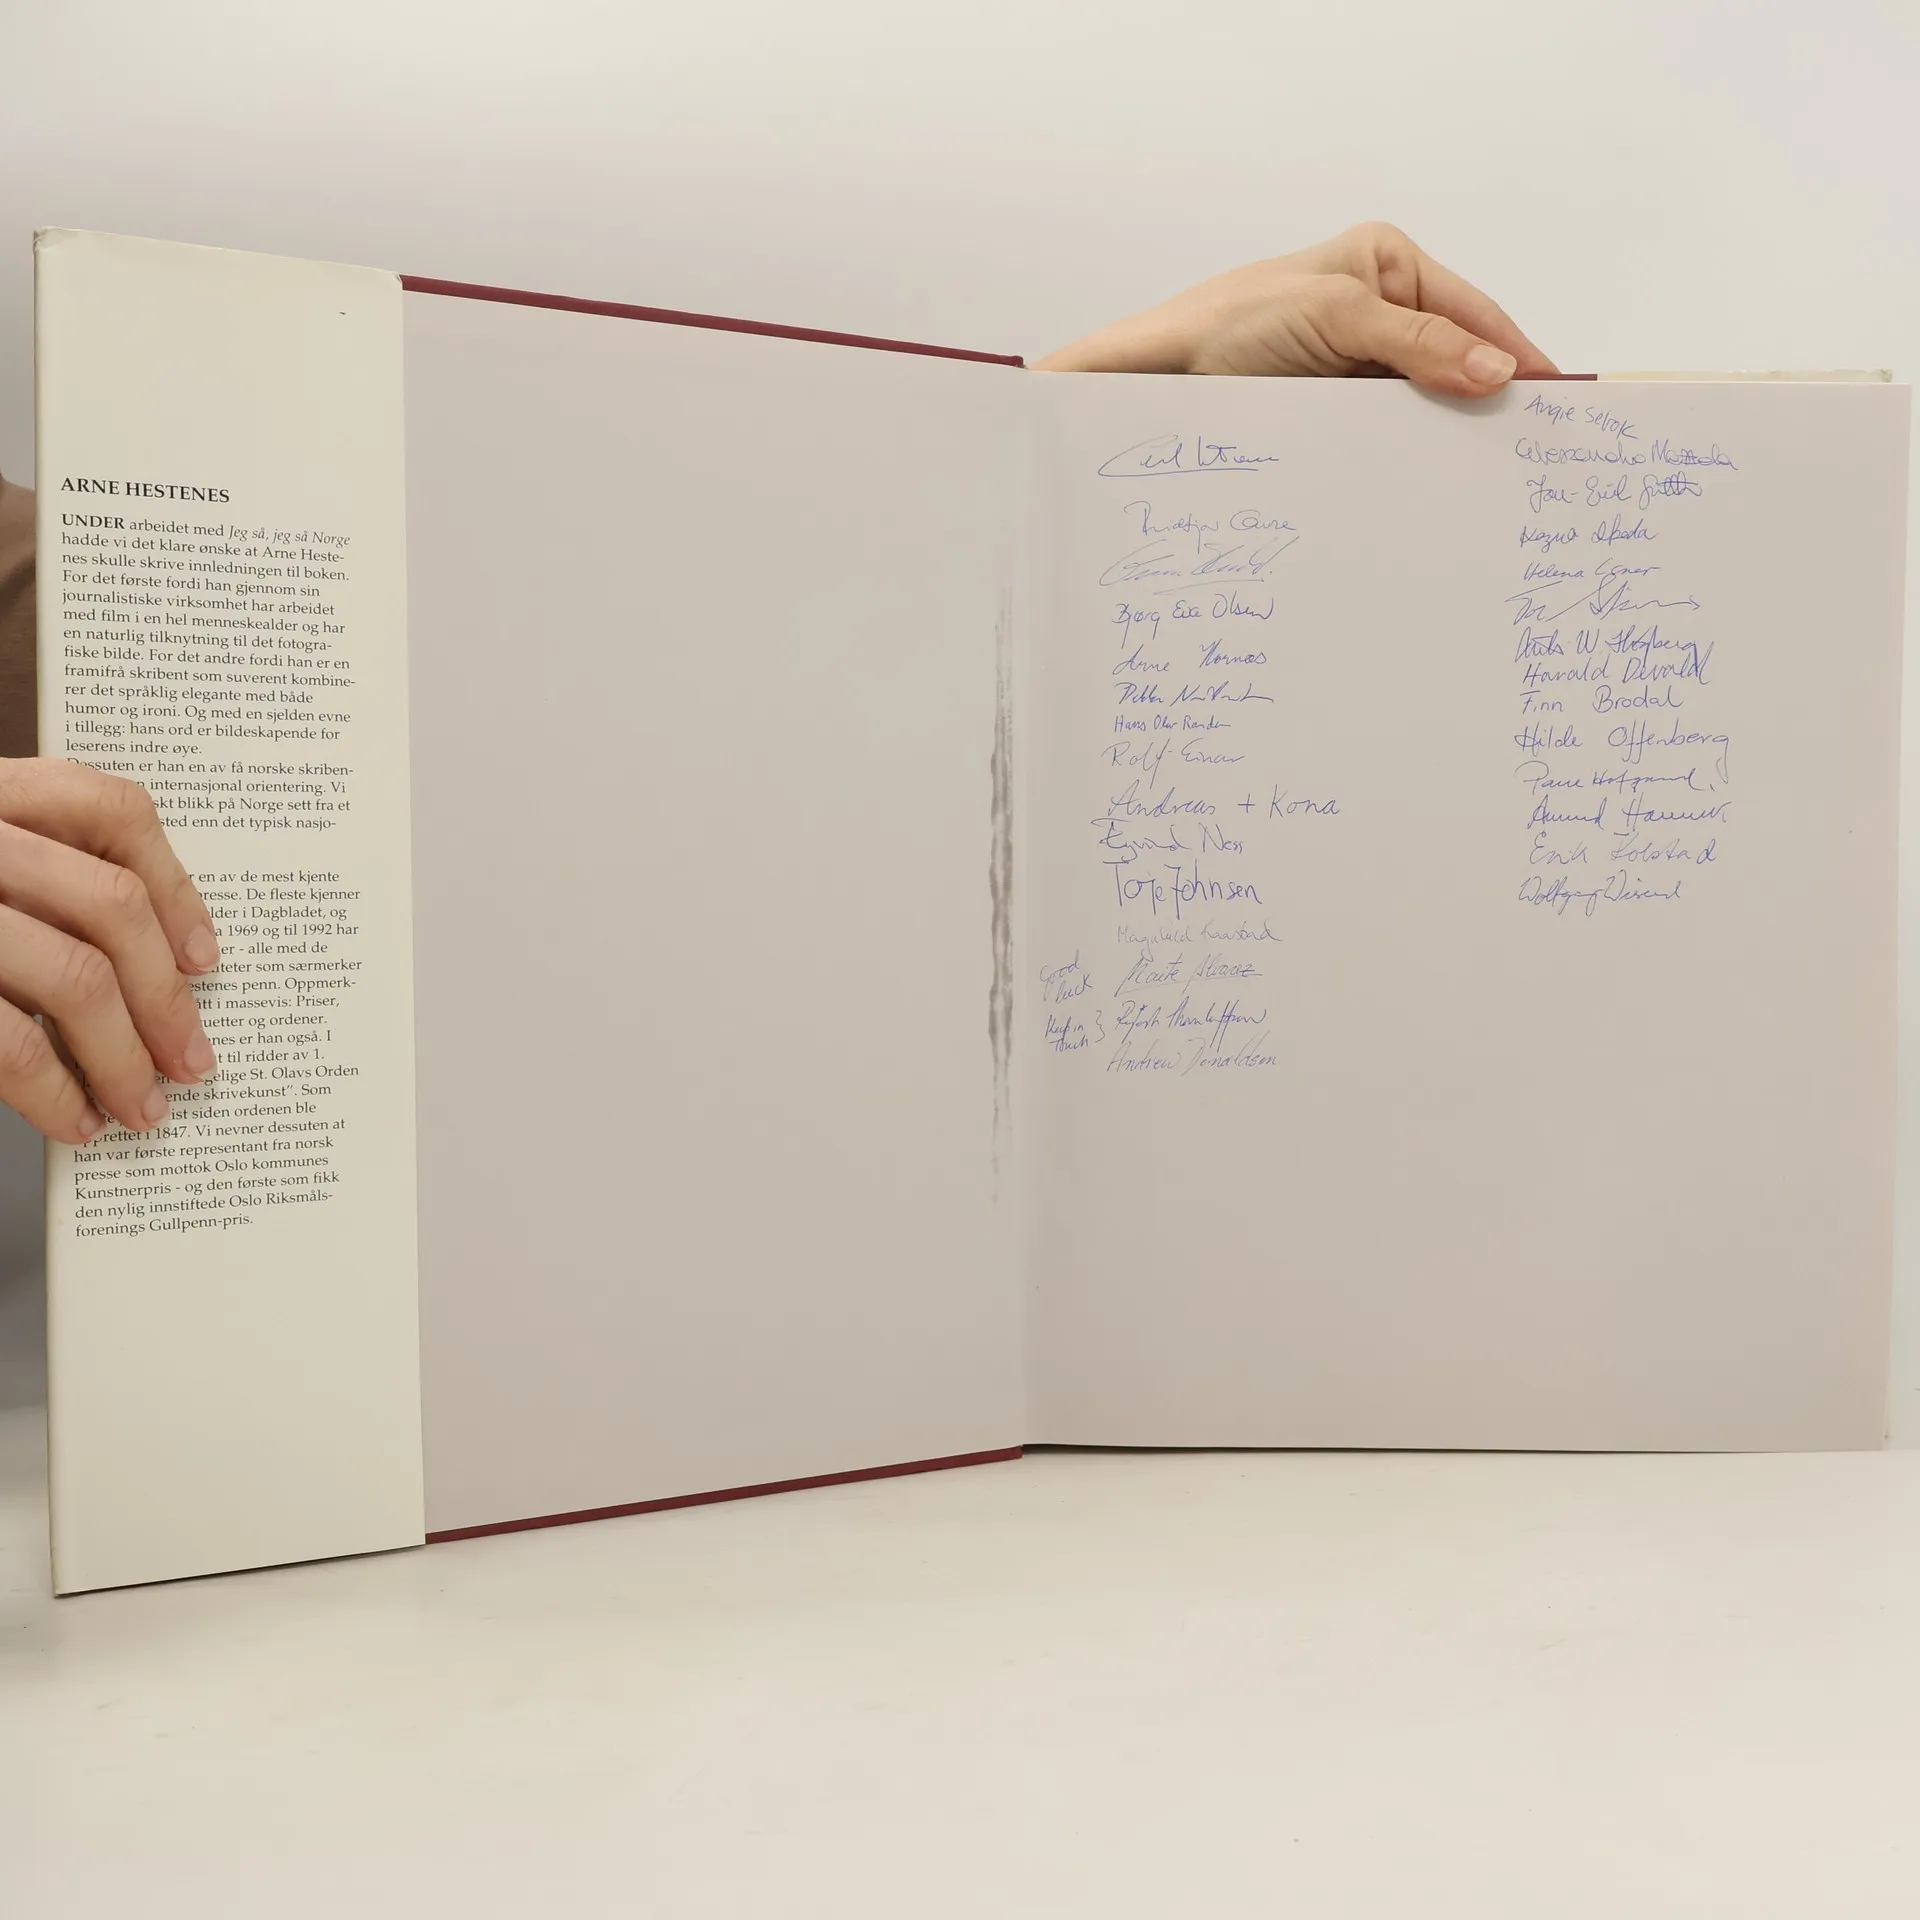 ARNE HESTENES
UNDER arbeidet med Jeg så, jeg så Norge
hadde vi det klare ønske at Arne Heste-
nes skulle skrive innledningen til boken.
For det første fordi han gjennom sin
journalistiske virksomhet har arbeidet
med film i en hel menneskealder og har
en naturlig tilknytning til det fotogra-
fiske bilde. For det andre fordi han er en
framifrå skribent som suverent kombine-
rer det språklig elegante med både
humor og ironi. Og med en sjelden evne
i tillegg: hans ord er bildeskapende for
leserens indre øye.
Dessuten er han en av få norske skriben-
internasjonal orientering. Vi
skt blikk på Norge sett fra et
sted enn det typisk nasjo-
r en av de mest kjente
presse. De fleste kjenner
lder i Dagbladet, og
a 1969 og til 1992 har
er - alle med de
iteter som særmerker
estenes penn. Oppmerk-
ått i massevis: Priser,
uetter og ordener.
nes er han også. I
t til ridder av 1.
gelige St. Olavs Orden
ende skrivekunst". Som
ist siden ordenen ble
opprettet i 1847. Vi nevner dessuten at
han var første representant fra norsk
presse som mottok Oslo kommunes
Kunstnerpris - og den første som fikk
den nylig innstiftede Oslo Riksmåls-
forenings Gullpenn-pris.
Bjørg Eva Olsen
Arne
Hans Olav Randen
Rolf-Einar
Andreas + Kona
Eyvind Ness
Torje Johnsen
Magnhild Kaarstad
Good
luck
Maite Alvarez
Keep in
touch
Andrew Donaldson
Angie Sebok
Alessandro
Jon-Eirik
Kazuo Ikeda
Helena
W.
Harald Devold
Finn Brodal
Hilde Offenberg
Amund
Erik Kolstad
Wolfgang